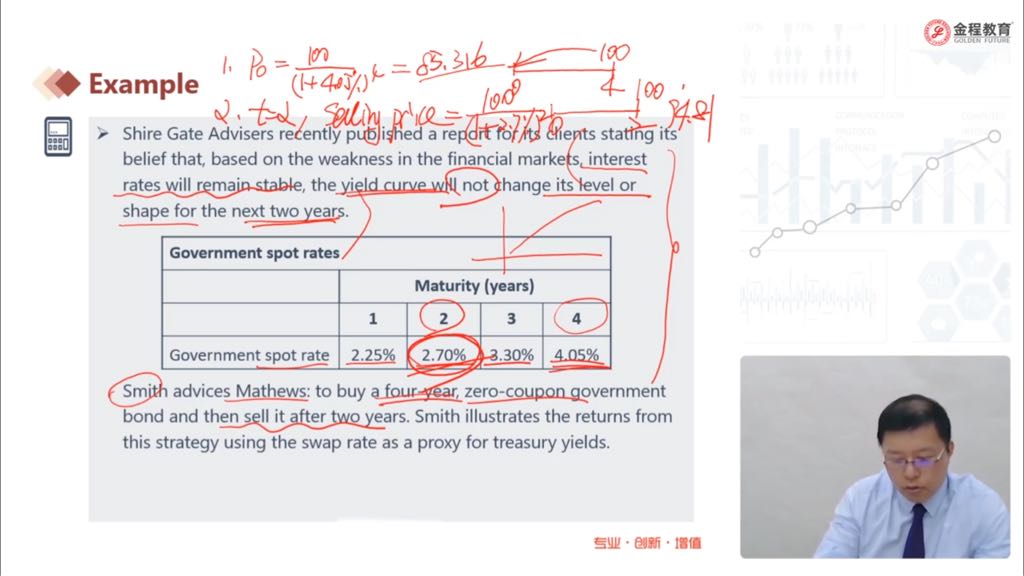 金程教育
GOLDEN FUTURE
1. P0 = 100/(1+4.05%)^4 = 85.316
100
4
Example
2. t=2, Selling price = 100/(1+2.7%)^2
0
100
2
94.81
Shire Gate Advisers recently published a report for its clients stating its
belief that, based on the weakness in the financial markets, interest
rates will remain stable, the yield curve will not change its level or
shape for the next two years.
Government spot rates
Maturity (years)
1 2 3 4
Government spot rate 2.25% 2.70% 3.30% 4.05%
Smith advices Mathews: to buy a four-year, zero-coupon government
bond and then sell it after two years. Smith illustrates the returns from
this strategy using the swap rate as a proxy for treasury yields.
专业·创新·增值